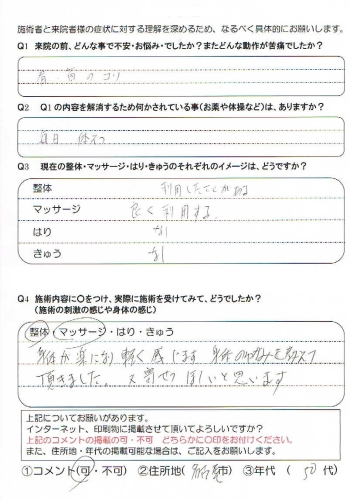 施術者と来院者様の症状に対する理解を深めるため、なるべく具体的にお願いします。
Q1 来院の前、どんな事で不安・お悩み・でしたか？またどんな動作が苦痛でしたか？
首 肩のコリ
Q2 Q1の内容を解消するため何かされている事（お薬や体操など）は、ありますか？
毎日
Q3 現在の整体・マッサージ・はり・きゅうのそれぞれのイメージは、どうですか？
整体 利用したことがある
マッサージ 良く利用する
はり なし
きゅう なし
Q4 施術内容に〇をつけ、実際に施術を受けてみて、どうでしたか？
（施術の刺激の感じや身体の感じ）
整体・マッサージ・はり・きゅう
身体が楽になり軽く感じます 身体のゆがみを教えて
頂きました。又寄せてほしいと思います
上記についてお願いがあります。
インターネット、印刷物に掲載させて頂いてよろしいですか？
上記のコメントの掲載の可・不可 どちらかに〇印をお付けください。
また、住所地・年代の掲載可能な場合は、ご記入をお願いします。
①コメント（可・不可） ②住所地（ 市） ③年代 （ 50 代）